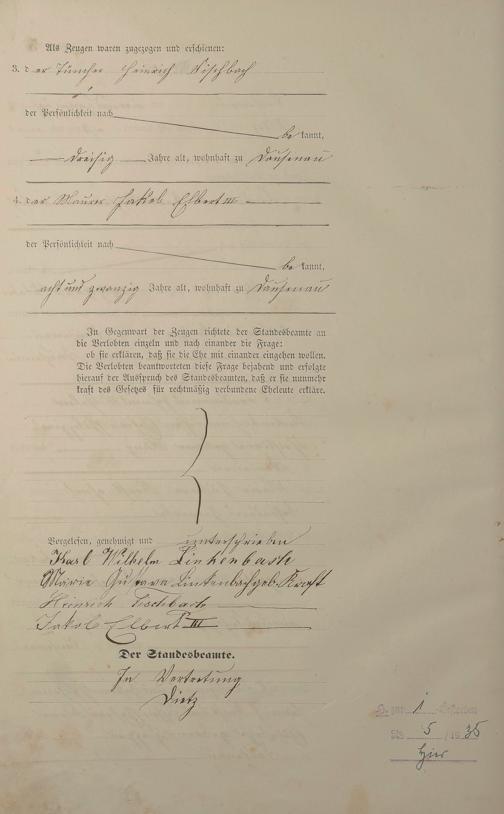 Als Zeugen waren zugezogen und erschienen:
3. der Tüncher Heinrich Fischbach
der Persönlichkeit nach
be kannt,
dreißig Jahre alt, wohnhaft zu Dausenau
4. der Maurer Jakob Elbert III
der Persönlichkeit nach
be kannt,
acht und zwanzig Jahre alt, wohnhaft zu Dausenau
In Gegenwart der Zeugen richtete der Standesbeamte an
die Verlobten einzeln und nach einander die Frage:
ob sie erklären, daß sie die Ehe mit einander eingehen wollen.
Die Verlobten beantworteten diese Frage bejahend und erfolgte
hierauf der Ausspruch des Standesbeamten, daß er sie nunmehr
kraft des Gesetzes für rechtmäßig verbundene Eheleute erkläre.
Vorgelesen, genehmigt und unterschrieben
Karl Wilhelm Linkenbach
Marie Linkenbach geb. Kraft
Heinrich Fischbach
Jakob Elbert III
Der Standesbeamte.
In Vertretung
Dietz
zur 1
5 / 1935
hier